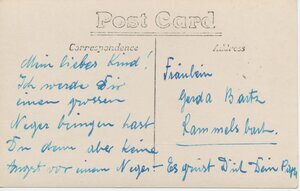 Post Card
Correspondence
Address
Mein liebes Kind!
Ich werde Dir
einen grossen
Neger bringen hast
Du denn aber keine
Angst vor einem Neger? – Es grüsst Dich Dein Papa
Fräulein
Gerda Bartz
Rammelsbach.